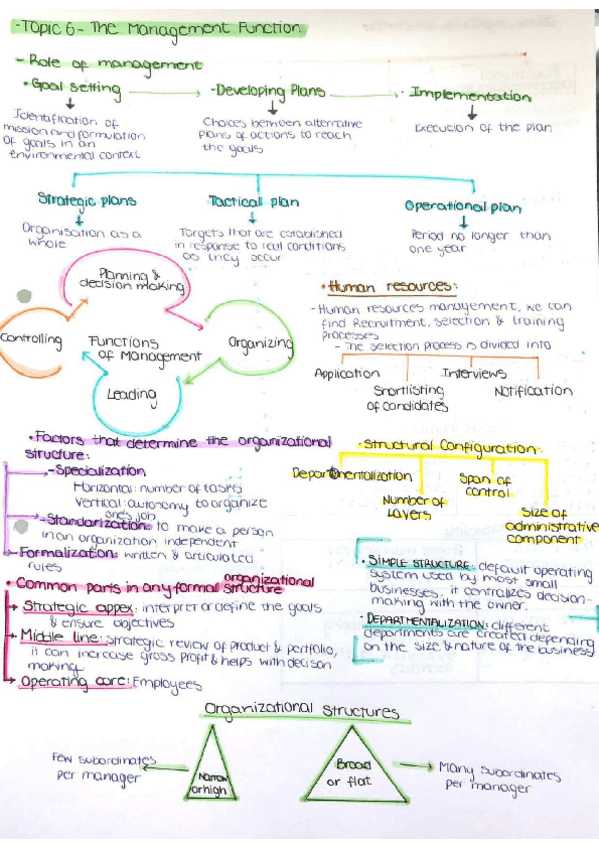 -Topic 6- The Management Function.
- Role of management
• Goal setting
-Developing Plans
• Implementation
Identification of
mission and formulation
of goals in an
environmental context
Choices between alternative
plans of actions to reach
the goals
Execution of the plan
Strategic plans
Tactical plan
Operational plan
Organisation as a
whole
Targets that are established
in response to real conditions
as they occur
Period no longer than
one year
Planning &
decision making
Controlling
Functions
of Management
Organizing
Leading
• Human resources:
- Human resources management, we can
find Recruitment, selection & training
processes
- The selection process is divided into
Application
Interviews
Shortlisting
of candidates
Notification
• Factors that determine the organizational
structure:
-Specialization
Horizontal: number of tasks
Vertical: autonomy to organize
one's job
-Standarization: to make a person
in an organization independent
-Formalization: written & articulated
rules
• Structural Configuration.
Departmentalization
Span of
control
Number of
Layers
Size of
administrative
component
• Common parts in any formal organizational
structure
Strategic appex: interpret or define the goals
& ensure objectives
Middle line: strategic review of product & portfolio,
it can increase gross profit & helps with decison
making
Operating core: Employees
• SIMPLE STRUCTURE: default operating
system used by most small
businesses, it centralizes decision-
making with the owner.
• DEPARTMENTALIZATION: different
departments are created depending
on the size & nature of the business
Organizational structures
Few subordinates
per manager
Narrow
or high
Broad
or flat
Many subordinates
per manager